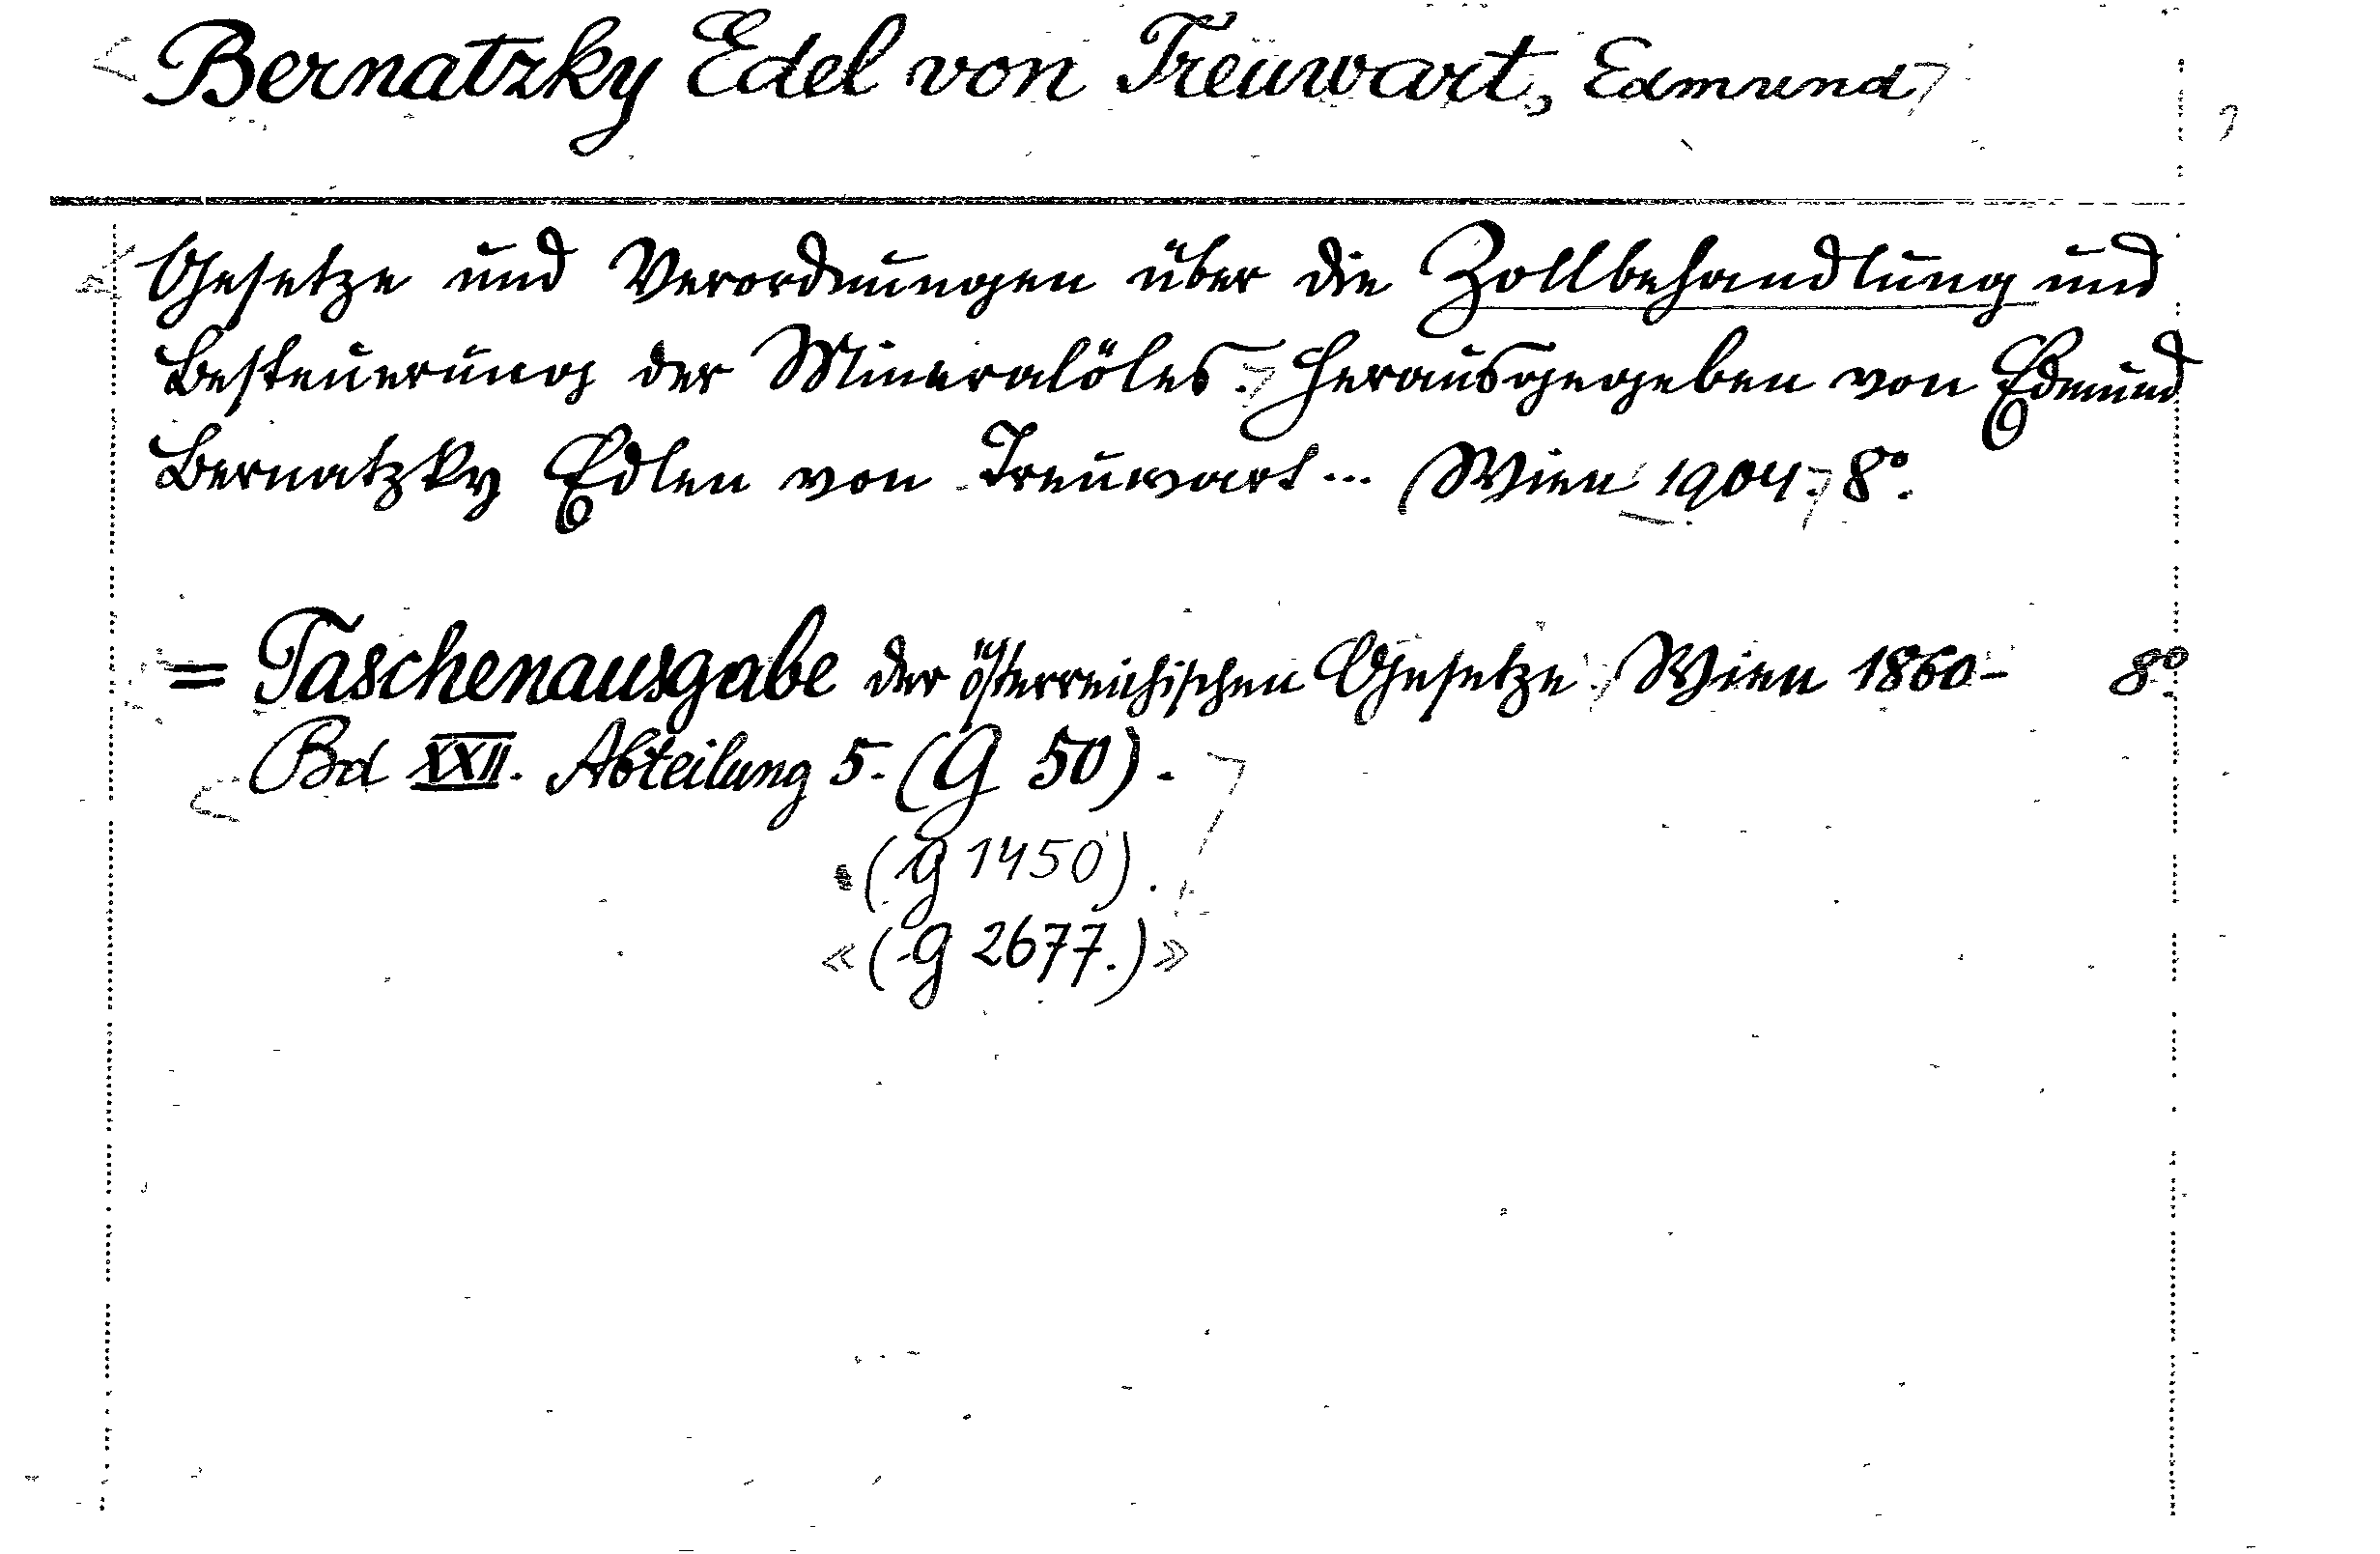 Bernatzky Edel von Treuwart, Edmund
Gesetze und Verordnungen über die Zollbehandlung und
Besteuerung der Mineralöles. Herausgegeben von Edmund
Bernatzky Edlen von Treuwart ... Wien 1904. 8°.
= Taschenausgabe der österreichischen Gesetze. Wien 1860- 8°.
Bd XXII. Abteilung 5. (G 50).
(G 1450).
«(G 2677.)»